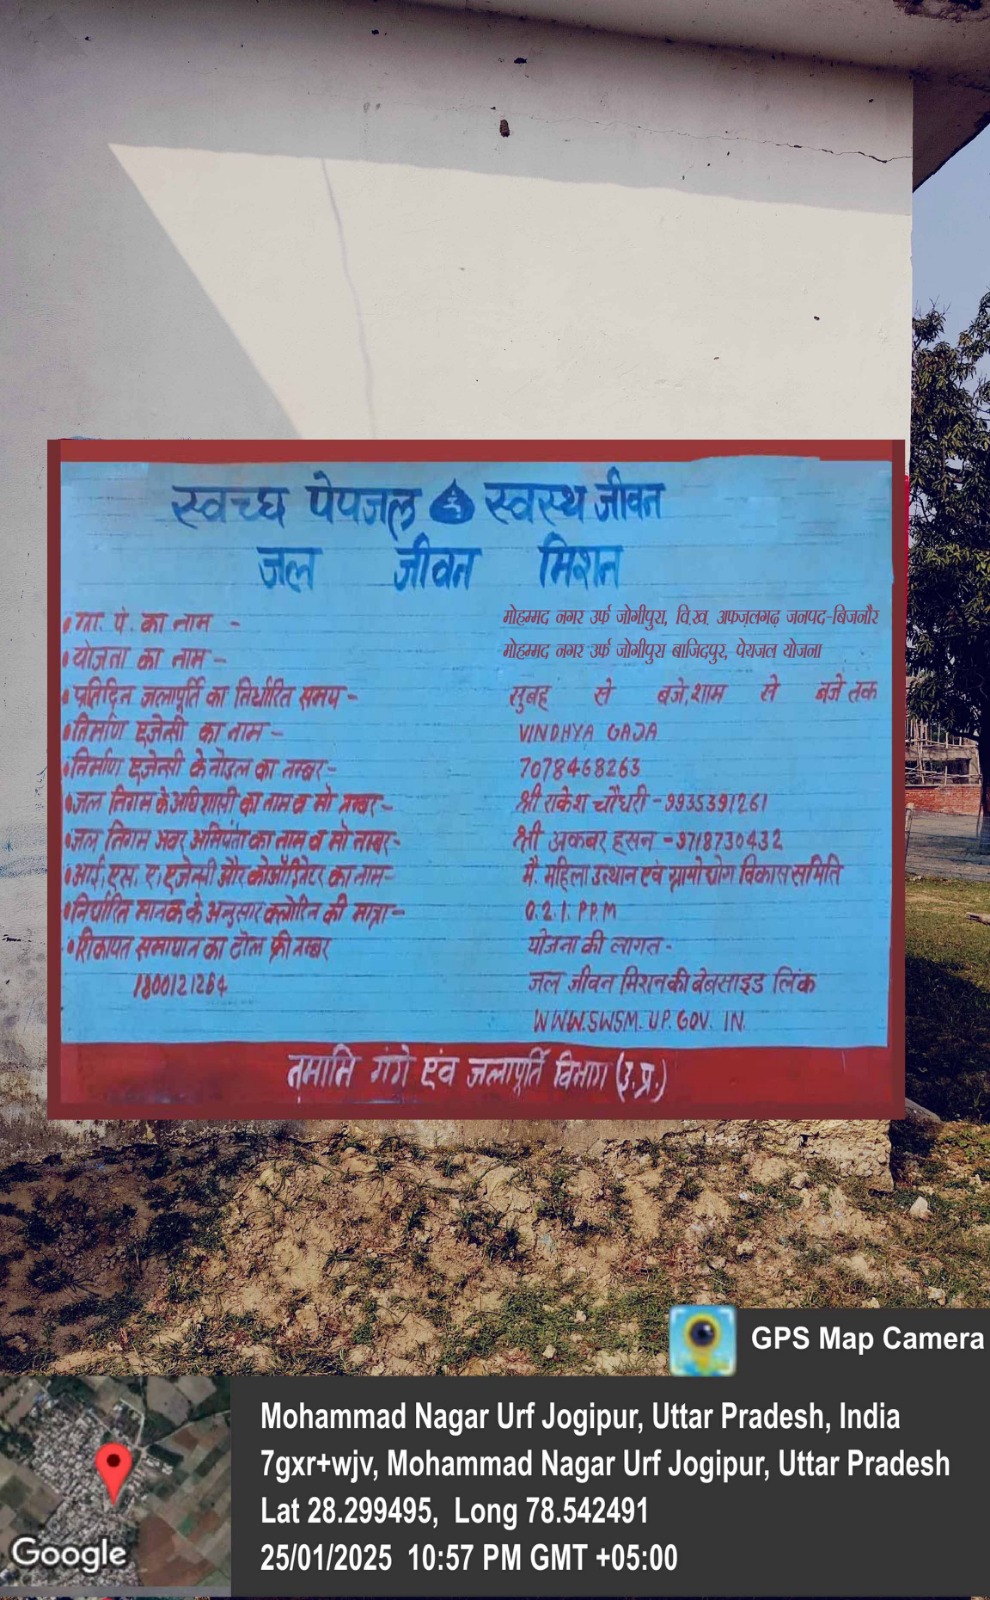 स्वच्छ पेयजल स्वस्थ जीवन
जल जीवन मिशन
• ग्रा. पं. का नाम - मोहम्मद नगर उर्फ जोगीपुरा, वि.ख. अफज़लगढ़ जनपद-बिजनौर
• योजना का नाम - मोहम्मद नगर उर्फ जोगीपुरा बाजिदपुर, पेयजल योजना
• प्रतिदिन जलापूर्ति का निर्धारित समय - सुबह से बजे,शाम से बजे तक
• निर्माण एजेन्सी का नाम - VINDHYA GAJA
• निर्माण एजेन्सी के नोडल का नम्बर- 7078468263
• जल निगम के अधिशासी का नाम व मो नम्बर- श्री राकेश चौधरी - 9935391261
• जल निगम अवर अभियंता का नाम व मो नम्बर- श्री अकबर हसन - 9718730432
• आई. एस. ए. एजेन्सी और कोऑर्डिनेटर का नाम- मै. महिला उत्थान एवं ग्रामोद्योग विकास समिति
• निर्धारित मानक के अनुसार क्लोरिन की मात्रा- 0.2.1. PPM
• शिकायत समाधान का टोल फ्री नम्बर योजना की लागत -
1800121264 जल जीवन मिशन की बेबसाइड लिंक
WWW.SWSM.UP.GOV.IN
नमामि गंगे एंव जलापूर्ति विभाग (उ.प्र.)
GPS Map Camera
Mohammad Nagar Urf Jogipur, Uttar Pradesh, India
7gxr+wjv, Mohammad Nagar Urf Jogipur, Uttar Pradesh
Lat 28.299495, Long 78.542491
25/01/2025 10:57 PM GMT +05:00
Google